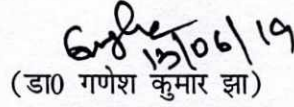 13/06/19
(डा0 गणेश कुमार झा)